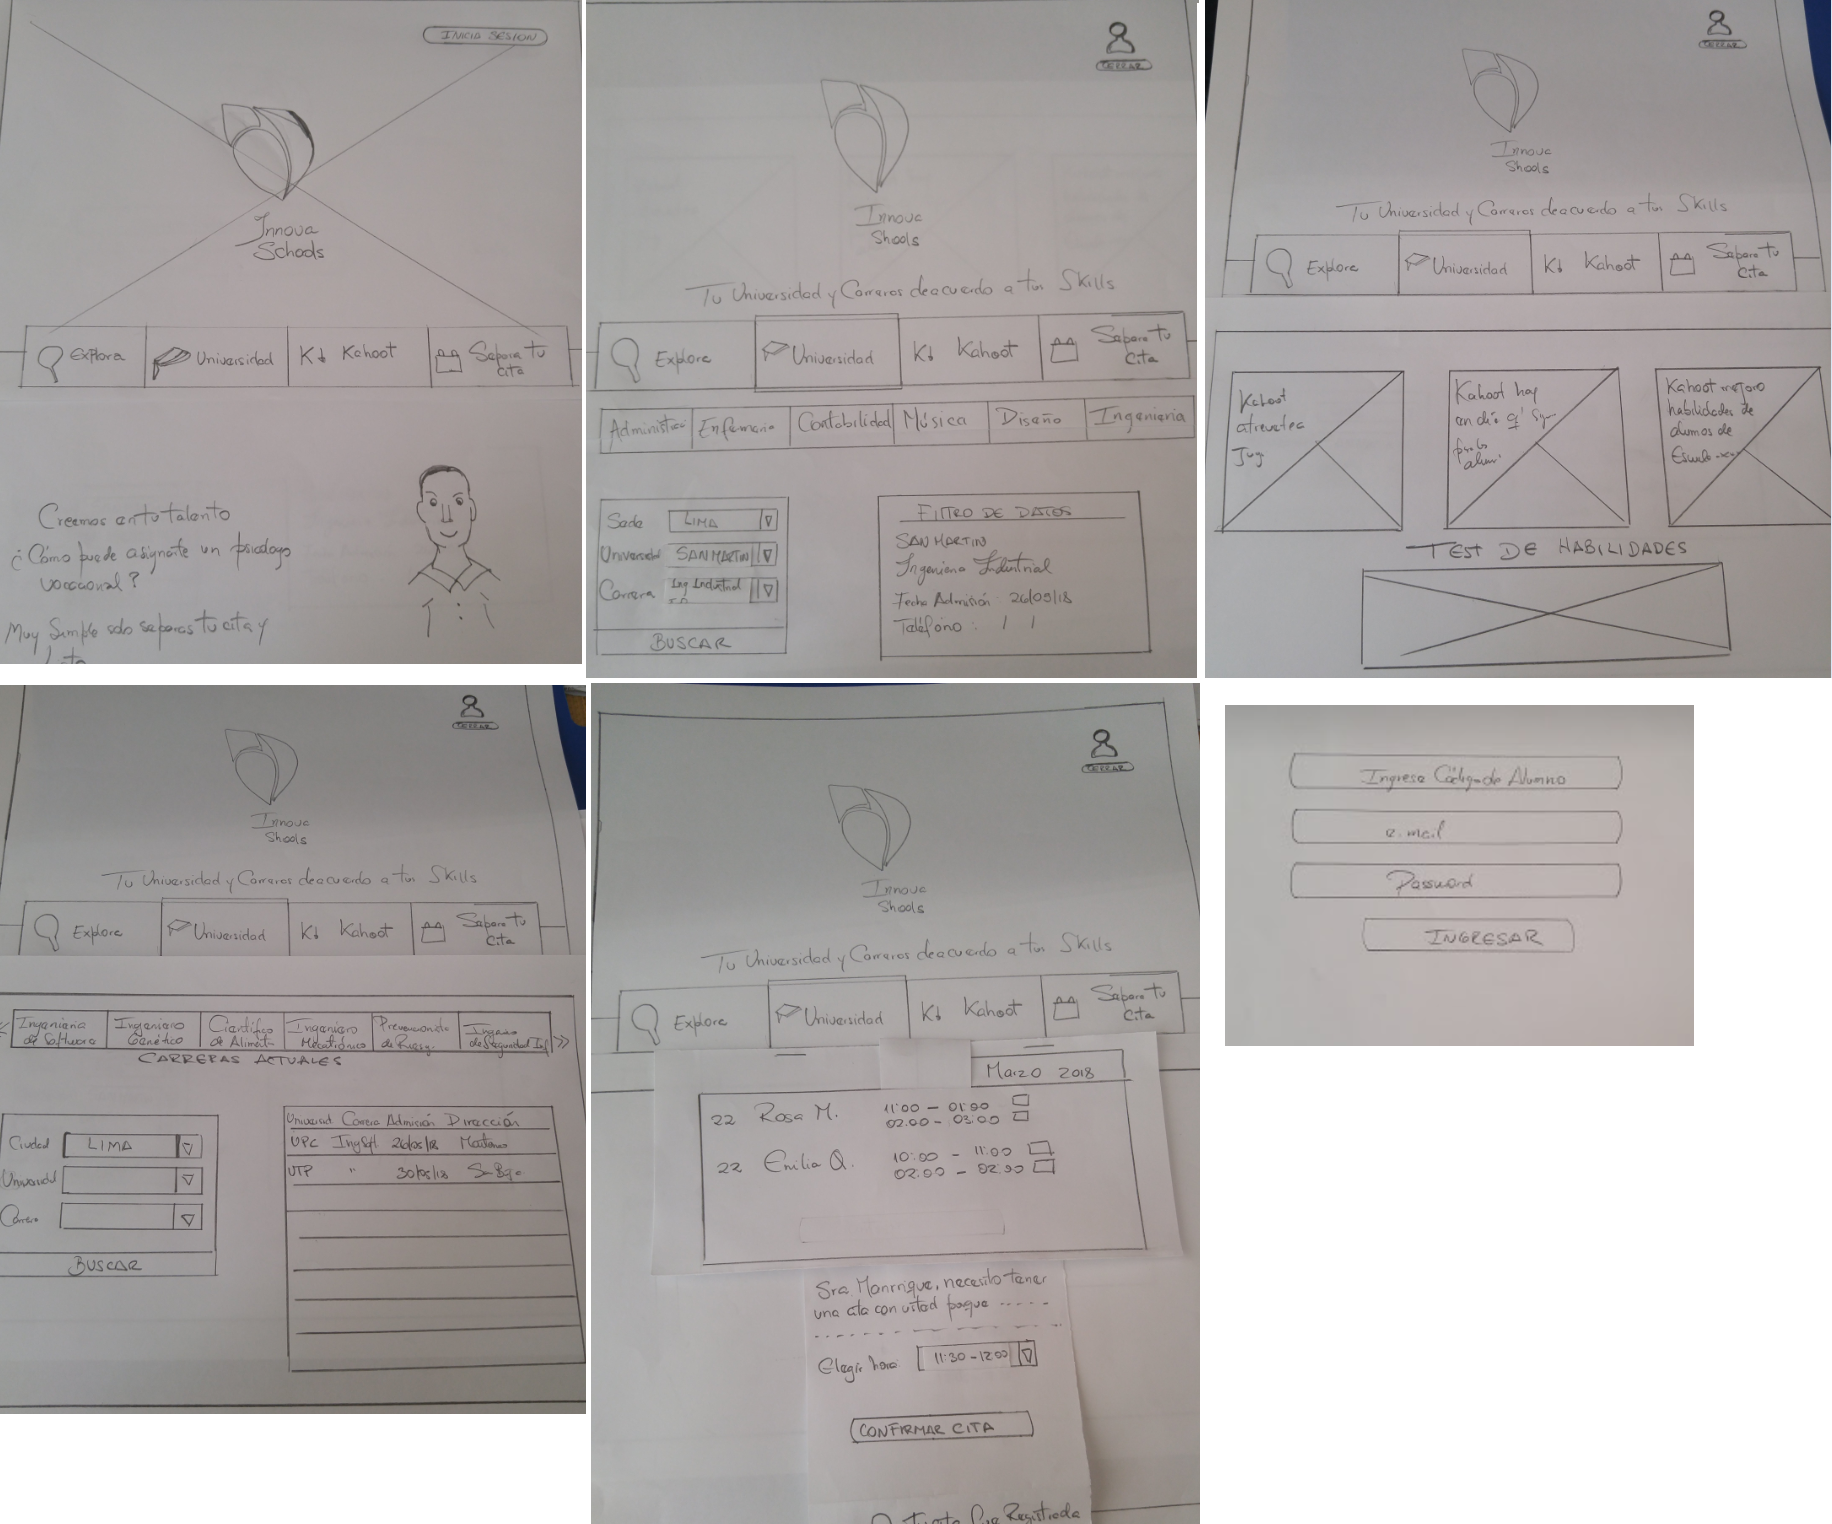 INICIA SESION
Innova
Schools
Explora
Universidad
K! Kahoot
Separa tu
cita
Creemos en tu talento
¿Cómo puede asignate un psicologo
vocacional?
Muy Simple solo separas tu cita y
CERRAR
Innova
Shools
Tu Universidad y Carreras deacuerdo a tus Skills
Explore
Universidad
K! Kahoot
Separa tu
cita
Administ
Enfermeria
Contabilidad
Música
Diseño
Ingenieria
Sede LIMA
Universidad SAN MARTIN
Carrera Ing Industrial
BUSCAR
FILTRO DE DATOS
SAN MARTIN
Ingenieria Industrial
Fecha Admisión 26/05/18
Teléfono : / /
CERRAR
Innova
Shools
Tu Universidad y Carreras deacuerdo a tus Skills
Explore
Universidad
K! Kahoot
Separa tu
cita
Kahoot
atrevetea
Jug
Kahoot hoy
en dia
alum.
Kahoot mejora
habilidades de
alumos de
TEST DE HABILIDADES
CERRAR
Innova
Shools
Tu Universidad y Carreras deacuerdo a tus Skills
Explore
Universidad
K! Kahoot
Separa tu
cita
Ingenieria
de Software
Ingeniero
Genético
Cientifico
de Aliment.
Ingeniero
Mecatrónico
de Riesg.
de Seguridad Inf
CARRERAS ACTUALES
Ciudad LIMA
Universidad
Carrera
BUSCAR
Universid Carrera Admisión Dirección
UPC Ing Sft 26/05/18
UTP " 30/05/18
CERRAR
Innova
Shools
Tu Universidad y Carreras deacuerdo a tus Skills
Explore
Universidad
K! Kahoot
Separa tu
cita
Marzo 2018
22 Rosa M. 11:00 - 01:00
02:00 - 03:00
22 Emilia Q. 10:00 - 11:00
02:00 - 02:30
Sra Manrrique, necesito tener
una cita con usted porque -----
Elegir hora: 11:30 - 12:00
CONFIRMAR CITA
Registrada
Ingresa Código de Alumno
e.mail
Password
INGRESAR